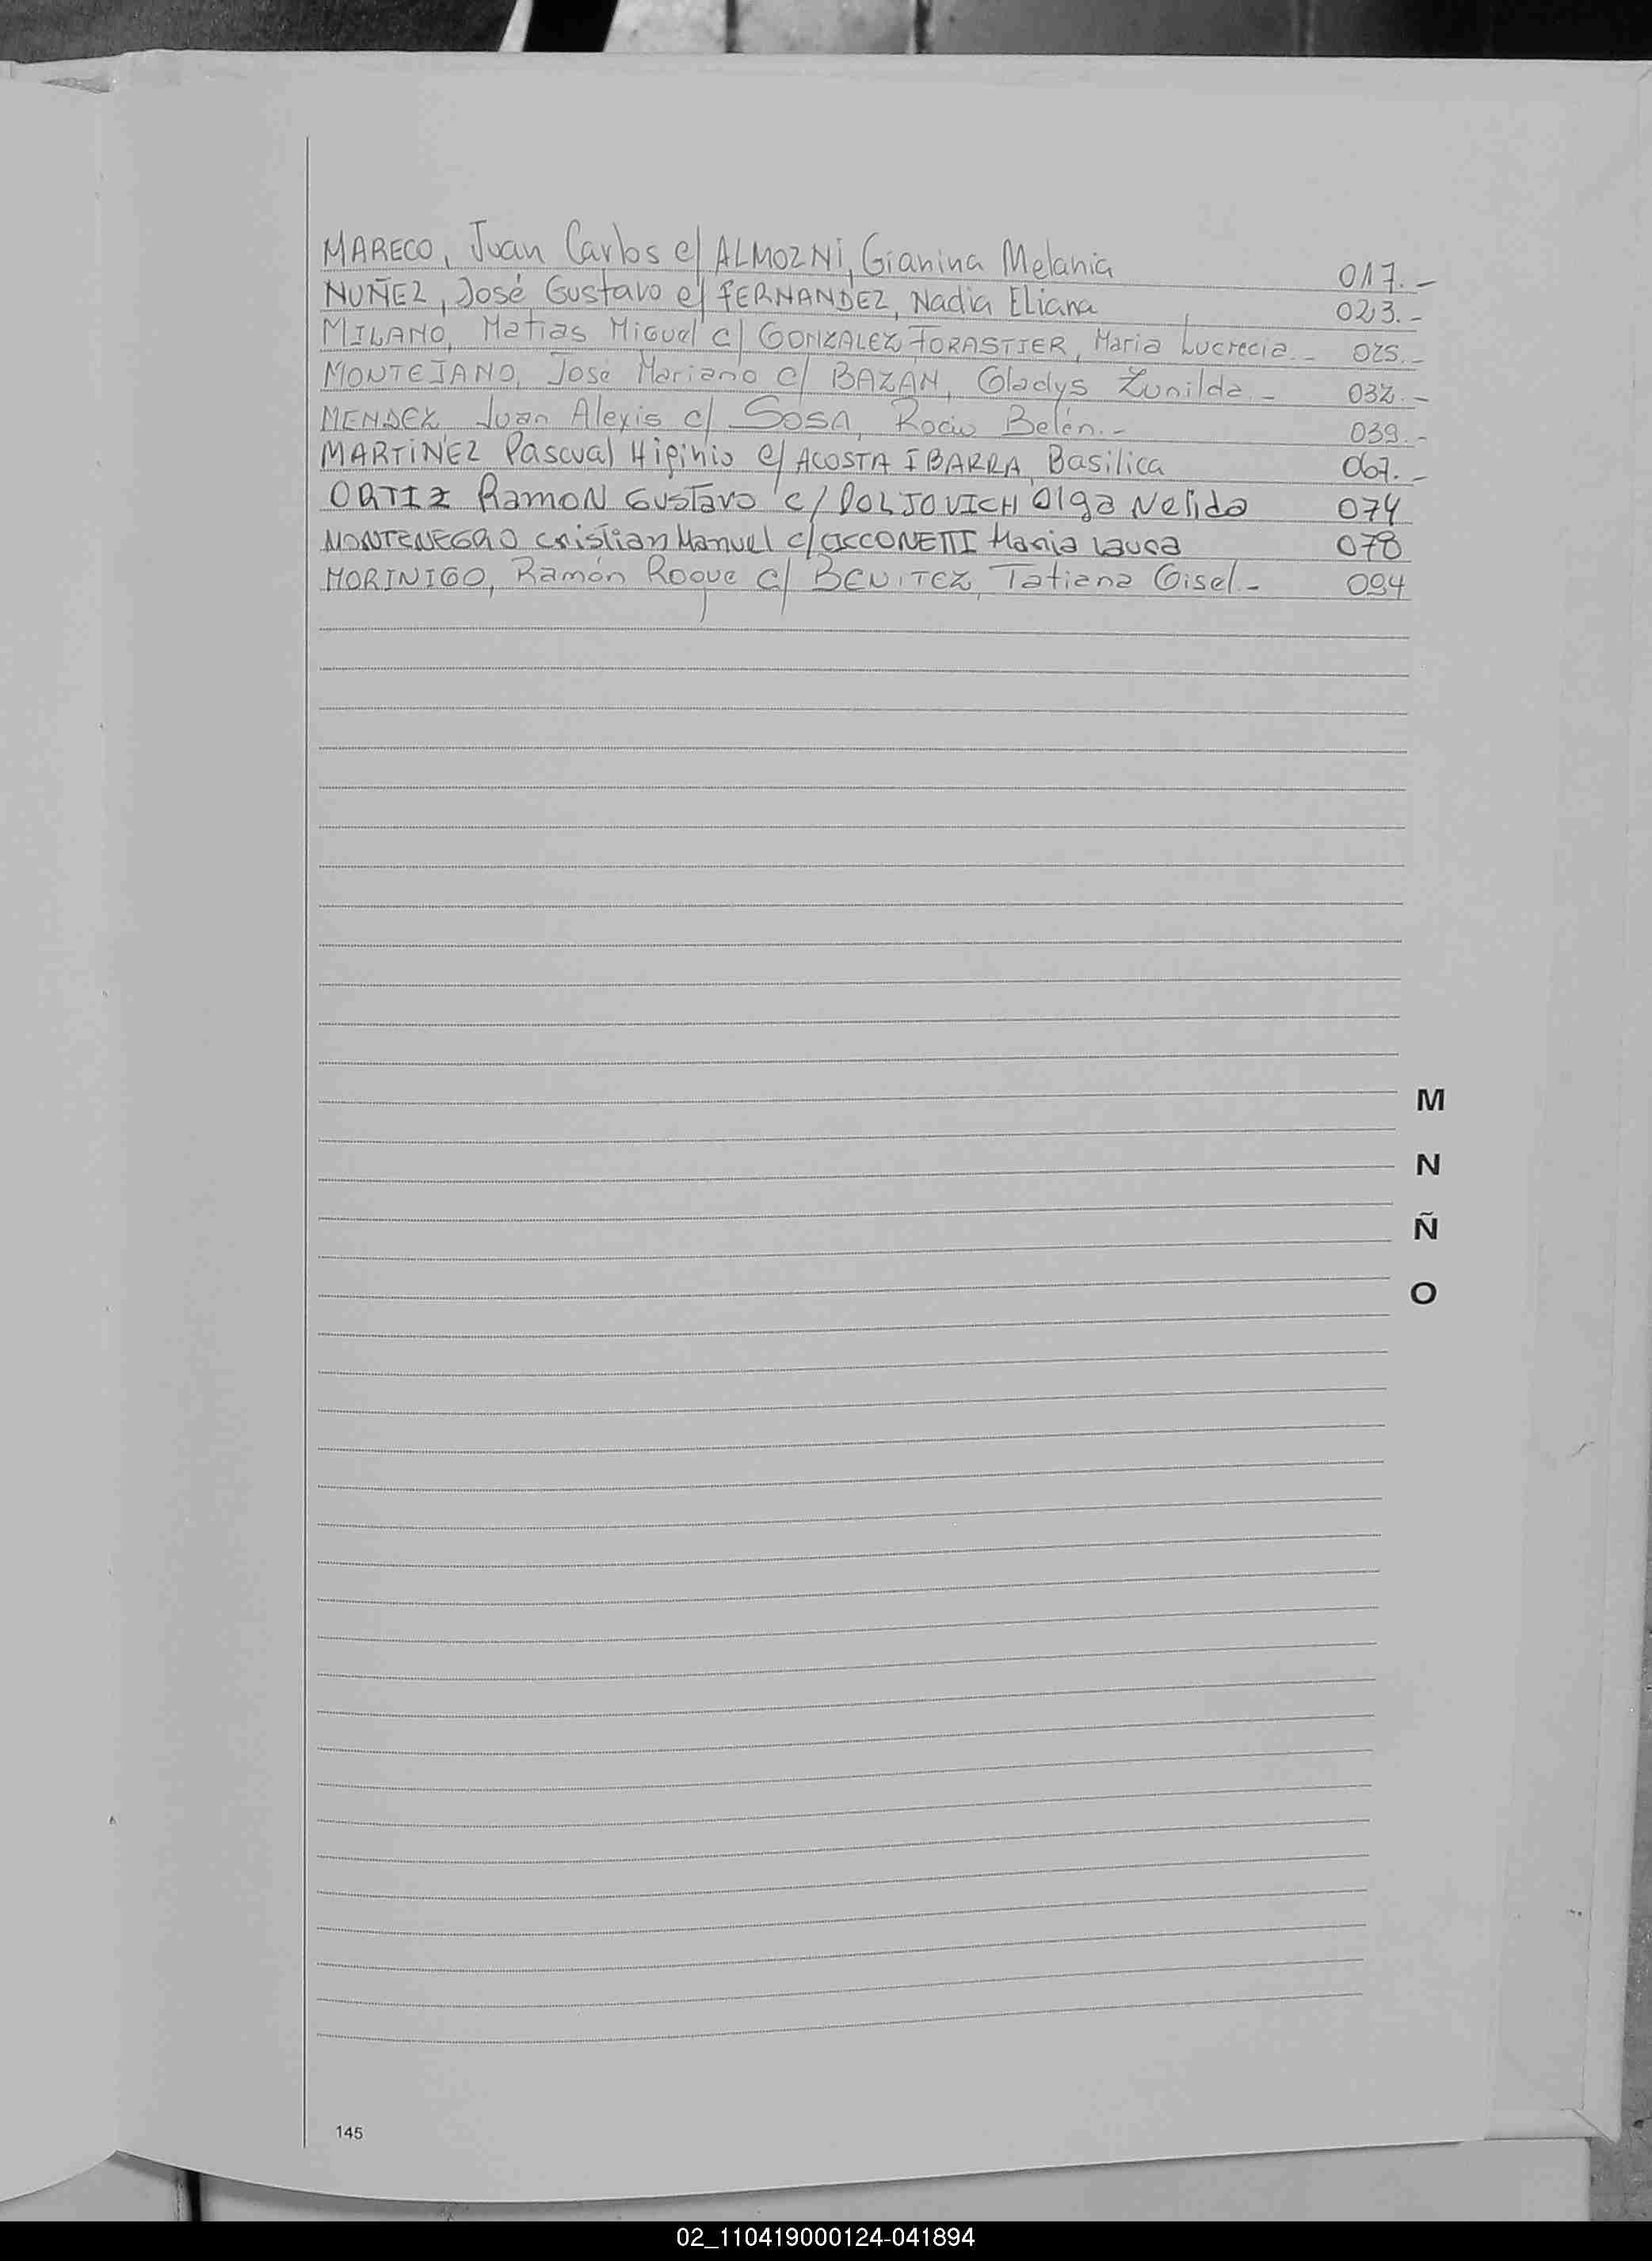 MARECO, Juan Carlos c/ ALMOZNI, Gianina Melania 017.-
NUÑEZ, José Gustavo c/ FERNANDEZ, Nadia Eliana 023.-
MILANO, Matias Miguel c/ GONZALEZ FORASTIER, Maria Lucrecia.- 025.-
MONTEJANO, José Mariano c/ BAZAN, Gladys Zunilda.- 032.-
MENDEZ Juan Alexis c/ SOSA, Rocío Belén.- 039.-
MARTINEZ Pascual Higinio c/ ACOSTA IBARRA, Basilica 067.-
ORTIZ Ramon Gustavo c/ Olga Nelida 074
MONTENEGRO Cristian Manuel c/ CICCONETTI Maria Laura 078
MORINIGO, Ramón Roque c/ BENITEZ, Tatiana Gisel.- 094
M
N
Ñ
O
145
02_110419000124-041894